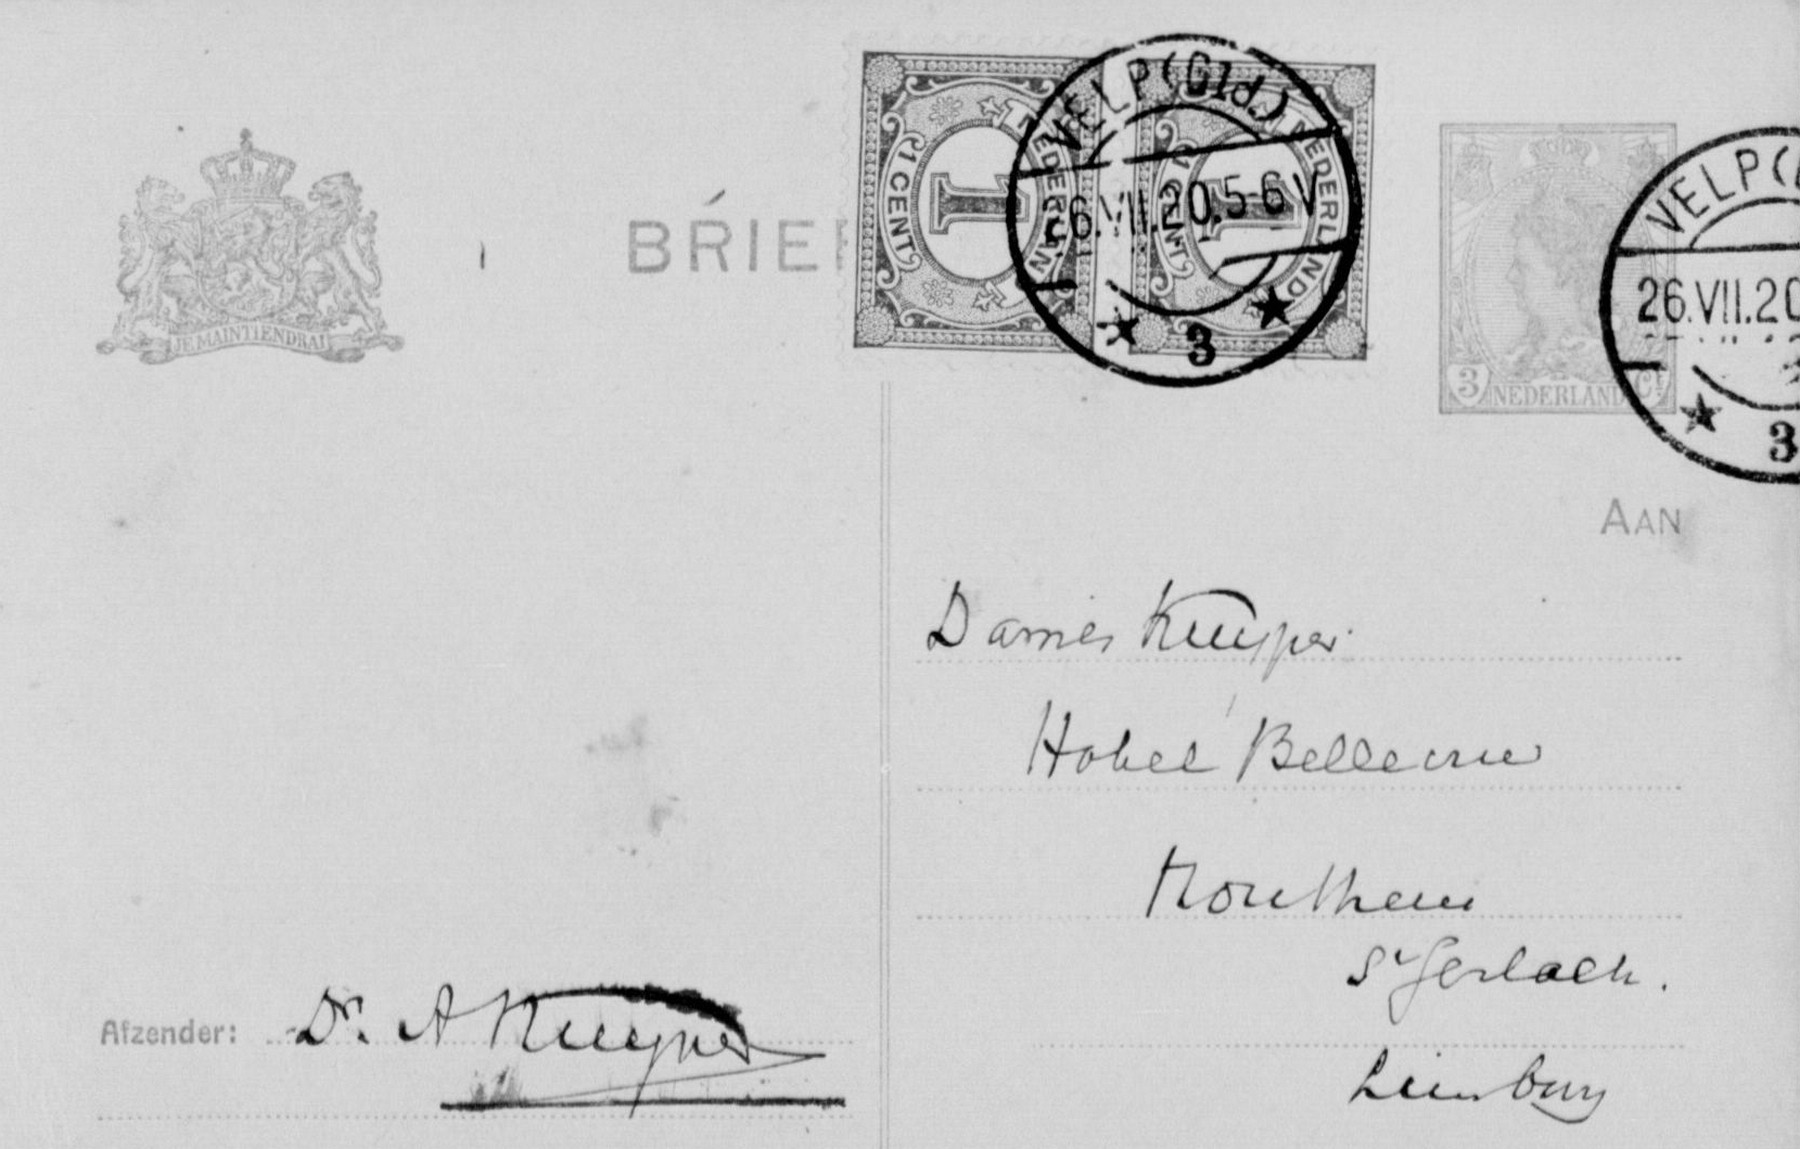 JE MAINTIENDRAI
BRIEF
1 CENT NEDERLAND
VELP (Gld.)
26.VII.20.5-6V
3
1 CENT NEDERLAND
3 NEDERLAND Ct
VELP (
26.VII.20
3
AAN
Dames Kuyper
Hotel Bellevue
Houthem
St Gerlach.
Limburg
Afzender: Dr. A Kuyper